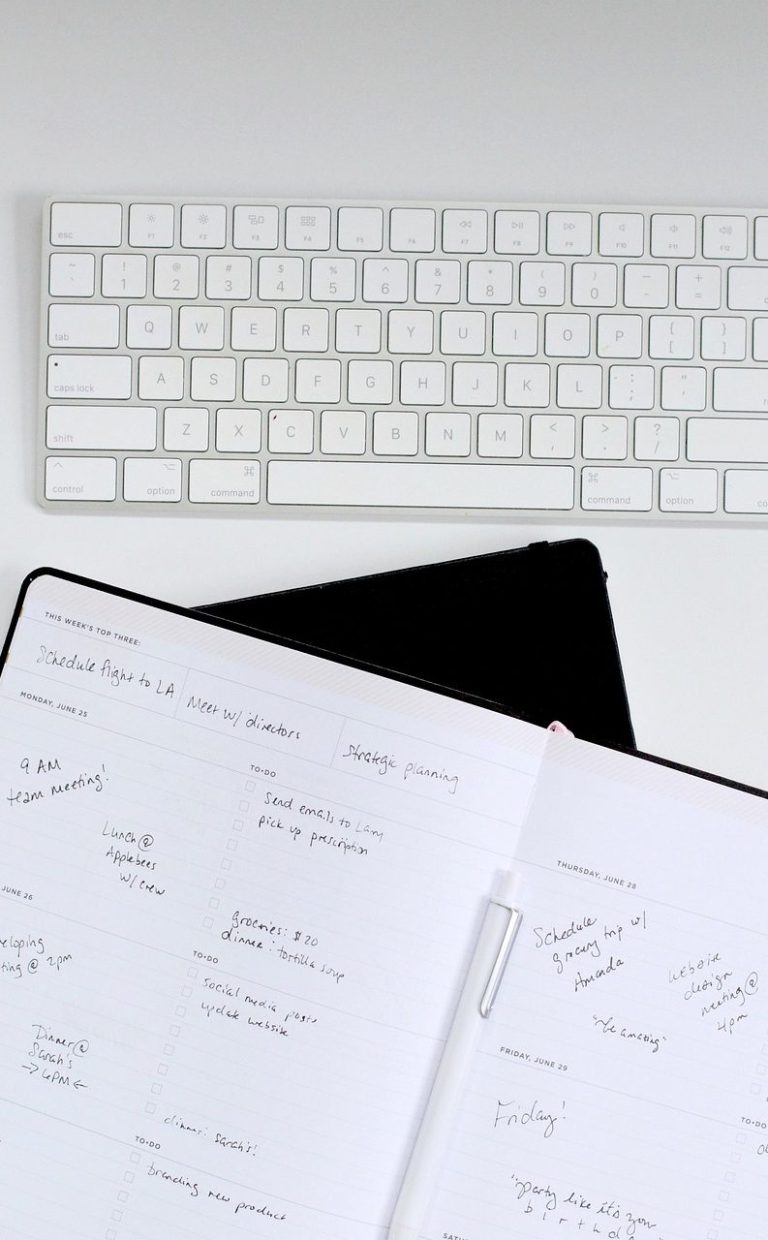 esc F1 F2 F3 F4 F5 F6 F7 F8 F9 F10 F11 F12
~ ! @ # $ % ^ & * ( ) — +
` 1 2 3 4 5 6 7 8 9 0 - =
tab Q W E R T Y U I O P { }
[ ]
caps lock A S D F G H J K L : "
; '
shift Z X C V B N M < > ?
, . /
control option command command option
THIS WEEK'S TOP THREE:
Schedule flight to LA
Meet w/ directors
Strategic planning
MONDAY, JUNE 25
9 AM
team meeting!
Lunch @
Applebees
w/ crew
TO-DO
Send emails to
pick up prescription
groceries: $20
dinner: tortilla soup
JUNE 26
@ 2pm
Dinner @
Sarah's
→ 6PM ←
TO-DO
social media posts
update website
dinner: Sarah's!
TO-DO
branding new product
THURSDAY, JUNE 28
Schedule
grocery trip w/
Amanda
website
design
meeting @
4pm
"be amazing"
FRIDAY, JUNE 29
Friday!
"party like it's your
TO-DO